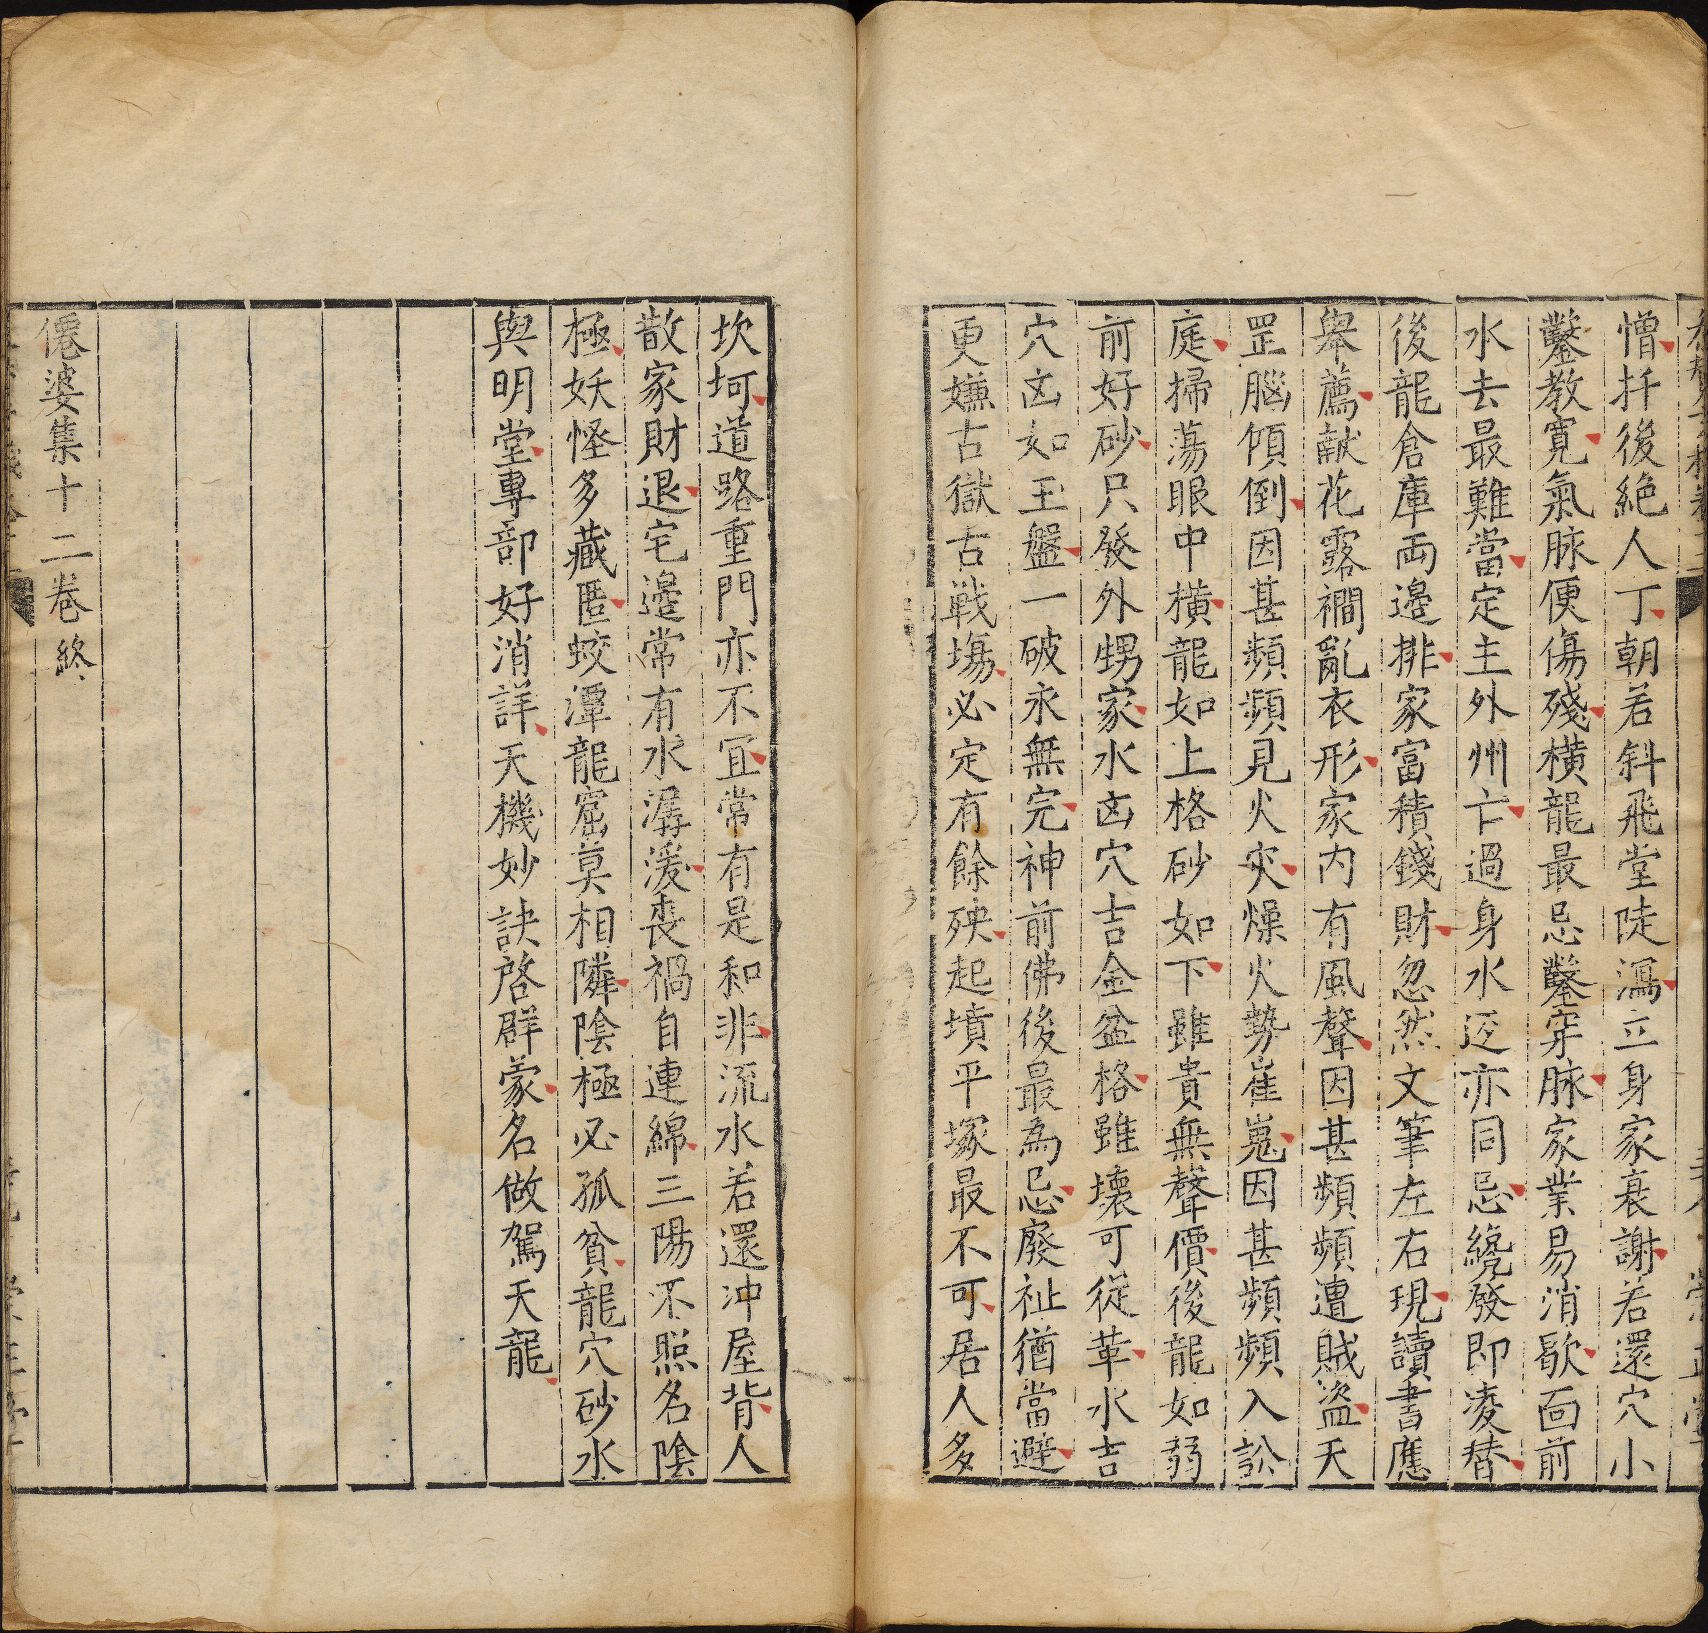 憎扦後絶人丁朝若斜飛堂陡瀉立身家衰謝若還穴小
鑿教寛氣脉便傷殘橫龍最忌鑿穿脉家業易消歇面前
水去最難當定主外州亡過身水迯亦同忌纔發即凌替
後龍倉庫両邉排家富積錢財忽然文筆左右現讀書應
舉薦献花露襉亂衣形家内有風聲因甚頻頻遭賊盗天
罡腦傾倒因甚頻頻見火灾燥火勢崔嵬因甚頻頻入訟
庭掃蕩眼中橫龍如上格砂如下雖貴無聲價後龍如弱
前好砂只發外甥家水凶穴吉金盆格雖壊可從革水吉
穴凶如玉盤一破永無完神前佛後最為忌廢祉猶當避
更嫌古獄古戦塲必定有餘殃起墳平塚最不可居人多
坎坷道路重門亦不冝常有是和非流水若還冲屋背人
散家財退宅邉常有水潺湲喪禍自連綿三陽不照名陰
極妖怪多藏匿蛟潭龍窟莫相隣陰極必孤貧龍穴砂水
與明堂專部好消詳天機妙訣啓群蒙名做駕天龍
僊婆集十二卷終